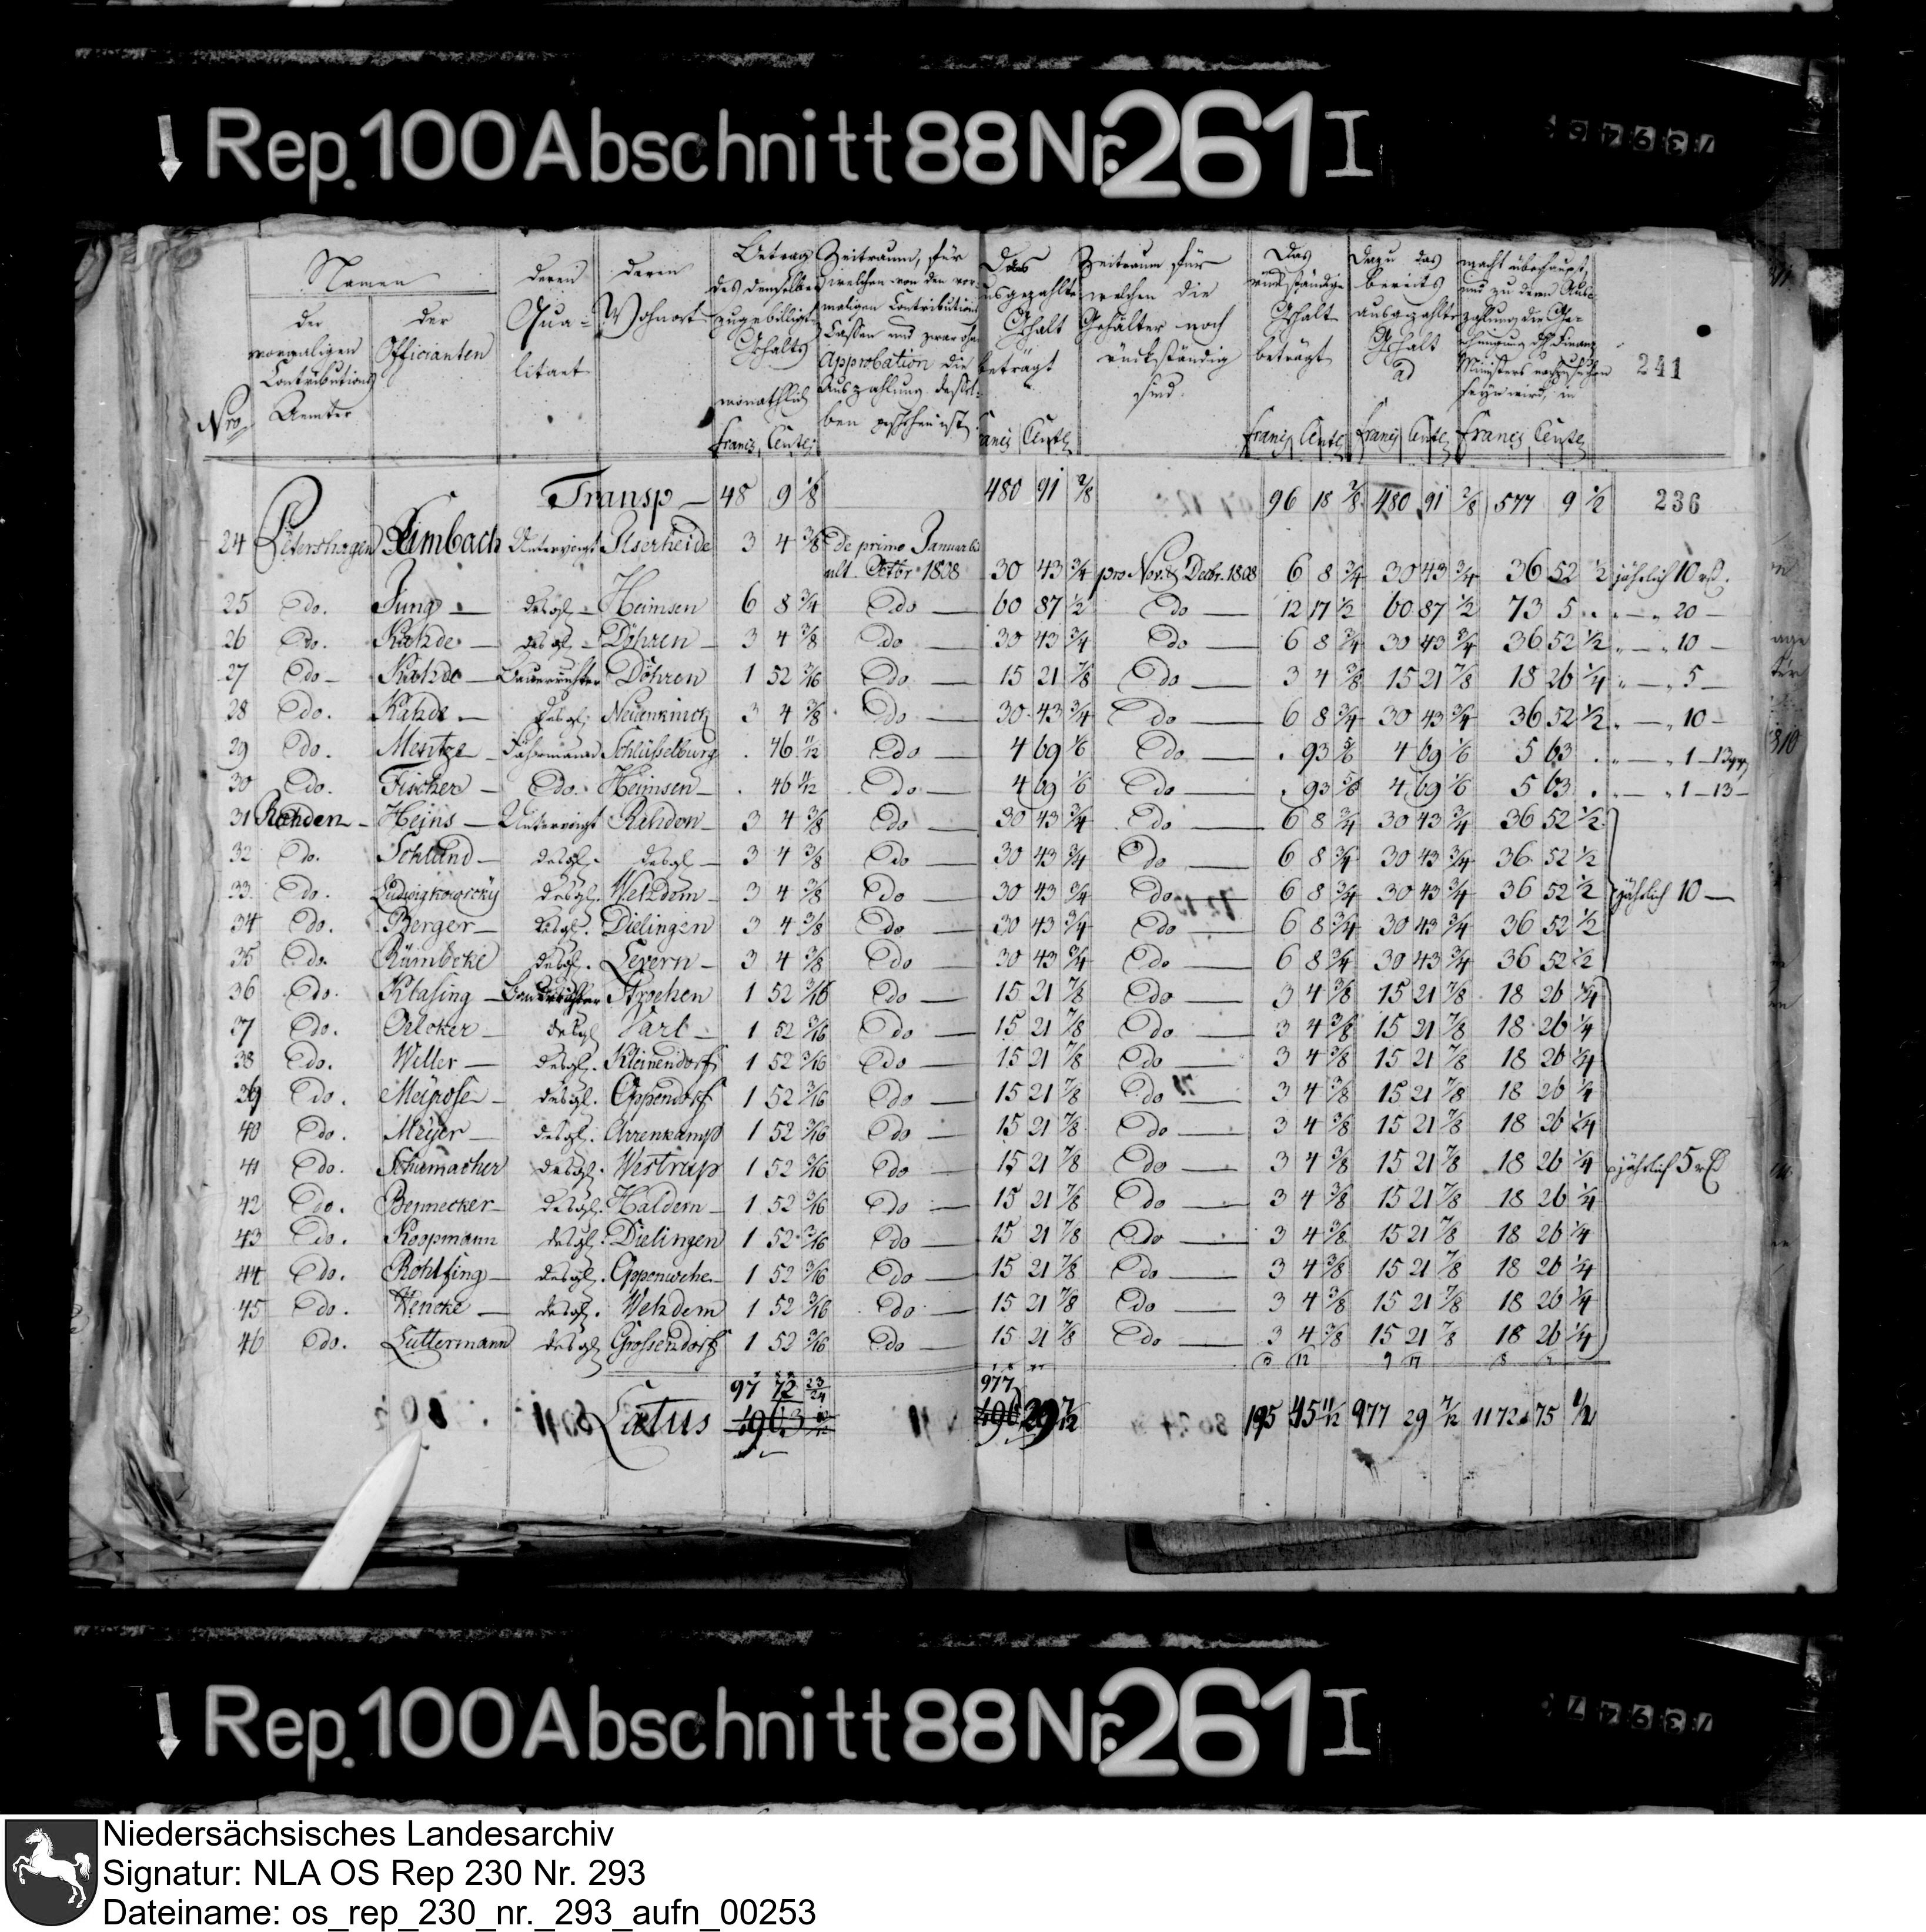 Rep. 100 Abschnitt 88 Nr. 261 I
Namen
der vormaligen Contributions Aemter
der Officianten
deren Qualitaet
deren Wohnort
Betrag des denselben zugebilligten Gehalts monathlich
Zeitraum, für welchen von den vormaligen Contributions Cassen und zwar ohne Approbation die Auszahlung desselben geschehen ist
Das ausgezahlte Gehalt beträgt
Zeitraum für welchen die Gehälter noch rückständig sind.
Das rückständige Gehalt beträgt
Dazu das bereits ausgezahlte Gehalt ad
macht überhaupt, und zu deren Auszahlung die Genehmigung des Finanz Ministers nachzusuchen seyn wird, in
Nro.
Francs Cents Francs Cents Francs Cents Francs Cents Francs Cents
241
Transp — 48 9 1/8 480 91 2/8 96 18 2/8 480 91 2/8 577 9 1/2 236
24 Petershagen Limbach Untervoigt Ilserheide 3 4 3/8 de primo Januar bis
ult. Octbr 1808 30 43 3/4 pro Nov. & Decbr. 1808 6 8 3/4 30 43 3/4 36 52 1/2 jährlich 10 rß.
25 do. Jung — desgl. Heimsen 6 8 3/4 do — 60 87 1/2 do — 12 17 1/2 60 87 1/2 73 5 . " — " 20 —
26 do. Rahde — desgl. Döhren — 3 4 3/8 do 30 43 3/4 do — 6 8 3/4 30 43 3/4 36 52 1/2 " — " 10 —
27 do — Rahde — Bauerrichter Döhren 1 52 3/16 do 15 21 7/8 do — 3 4 3/8 15 21 7/8 18 26 1/4 " — " 5 —
28 do. Rahde — desgl. Neuenknick 3 4 3/8 do 30 43 3/4 do — 6 8 3/4 30 43 3/4 36 52 1/2 " — " 10 —
29 do. Mentze — Fährmann Schlüsselburg . 46 11/12 do — 4 69 1/6 do — . 93 5/6 4 69 1/6 5 63 . " — " 1 — 13 ggr
30 do. Fischer — do. Heimsen — . 46 11/12 do — 4 69 1/6 do — . 93 5/6 4 69 1/6 5 63 . " — " 1 — 13 —
31 Rahden — Heins — Untervoigt Rahden — 3 4 3/8 do 30 43 3/4 do — 6 8 3/4 30 43 3/4 36 52 1/2
32 do. Schland — desgl. desgl — 3 4 3/8 do 30 43 3/4 do — 6 8 3/4 30 43 3/4 36 52 1/2
33. do. desgl. Wehdem — 3 4 3/8 do 30 43 3/4 do — 6 8 3/4 30 43 3/4 36 52 1/2 jährlich 10 —
34 do. Berger — desgl. Dielingen 3 4 3/8 do — 30 43 3/4 do — 6 8 3/4 30 43 3/4 36 52 1/2
35 do. Rümbcke desgl. Levern — 3 4 3/8 do 30 43 3/4 do — 6 8 3/4 30 43 3/4 36 52 1/2
36 do. Klasing — Bauerrichter Ströhen 1 52 3/16 do — 15 21 7/8 do — 3 4 3/8 15 21 7/8 18 26 1/4
37 do. Oelcker — desgl Varl — 1 52 3/16 do — 15 21 7/8 do — 3 4 3/8 15 21 7/8 18 26 1/4
38 do. Weller — desgl. Kleinendorf 1 52 3/16 do — 15 21 7/8 do — 3 4 3/8 15 21 7/8 18 26 1/4
39 do. desgl. Oppendorf 1 52 3/16 do — 15 21 7/8 do — 3 4 3/8 15 21 7/8 18 26 1/4
40 do. Meyer — desgl. Arrenkamp 1 52 3/16 do — 15 21 7/8 do — 3 4 3/8 15 21 7/8 18 26 1/4
41 do. Schumacher desgl. Westrup 1 52 3/16 do — 15 21 7/8 do — 3 4 3/8 15 21 7/8 18 26 1/4 jährlich 5 rß
42 do. Bennecker — desgl. Haldem — 1 52 3/16 do — 15 21 7/8 do — 3 4 3/8 15 21 7/8 18 26 1/4
43 do. Koopmann desgl. Dielingen 1 52 3/16 do — 15 21 7/8 do — 3 4 3/8 15 21 7/8 18 26 1/4
44 do. Rohlfing — desgl. Oppenwehe — 1 52 3/16 do — 15 21 7/8 do — 3 4 3/8 15 21 7/8 18 26 1/4
45 do. Hencke — desgl. Wehdem 1 52 3/16 do — 15 21 7/8 do — 3 4 3/8 15 21 7/8 18 26 1/4
46 do. Luttermann desgl Grossendorf 1 52 3/16 do — 15 21 7/8 do — 3 4 3/8 15 21 7/8 18 26 1/4
97 72 23/24 977
Latus 29 7/12 195 45 11/12 977 29 7/12 1172 75 1/2
Rep. 100 Abschnitt 88 Nr. 261 I
Niedersächsisches Landesarchiv
Signatur: NLA OS Rep 230 Nr. 293
Dateiname: os_rep_230_nr._293_aufn_00253